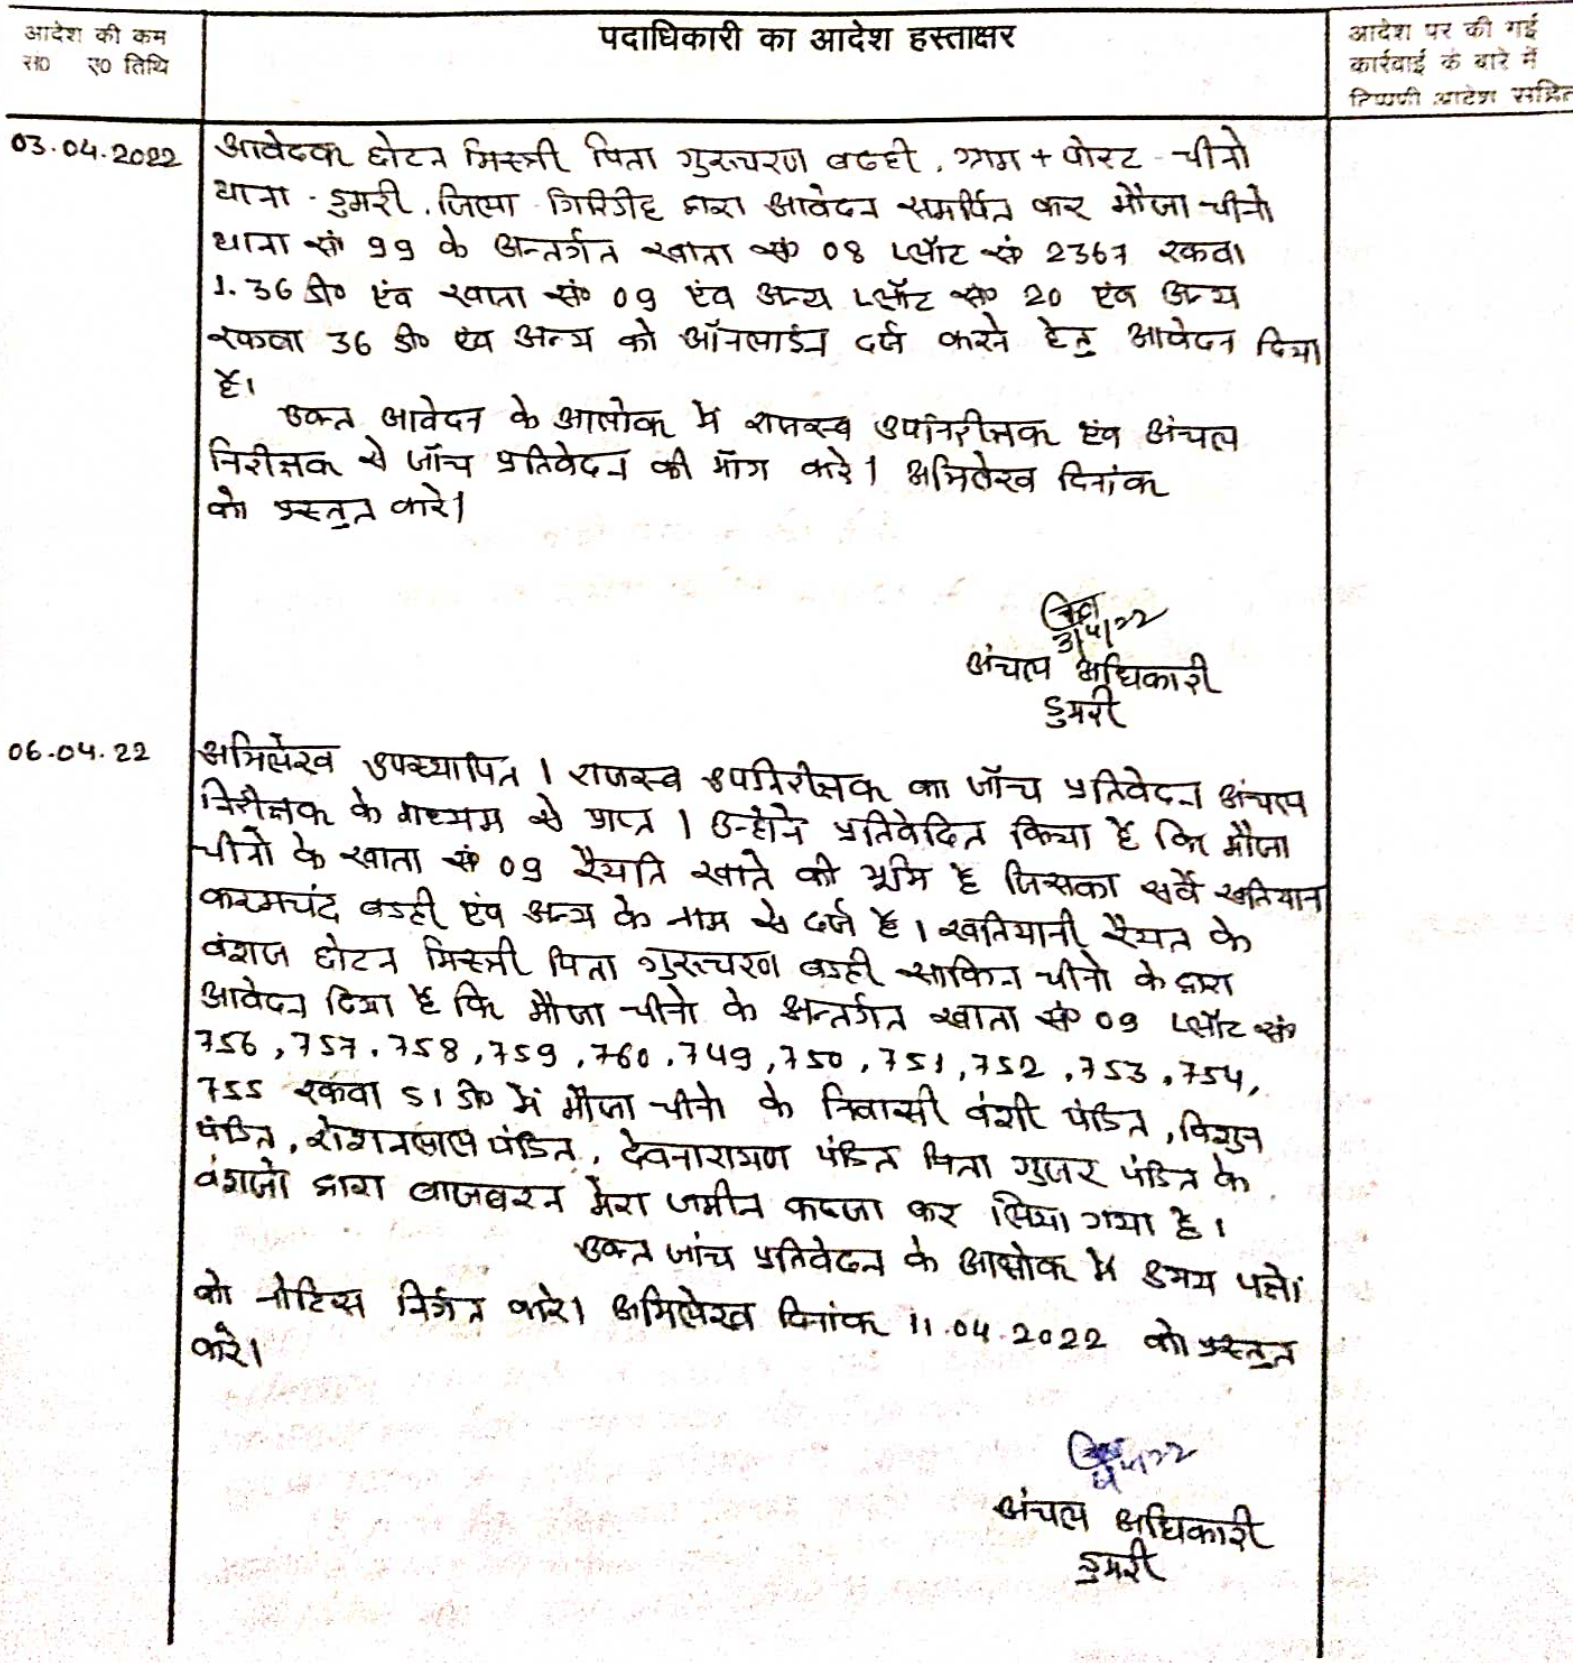 आदेश की कम
स० ए० तिथि
पदाधिकारी का आदेश हस्ताक्षर
आदेश पर की गई
कार्रवाई के बारे में
टिप्पणी आदेश सहित
03.04.2022
आवेदक छोटन मिस्त्री पिता गुरुचरण बढही, ग्राम + पोस्ट - चीनो
थाना - डुमरी, जिला - गिरिडीह द्वारा आवेदन समर्पित कर मौजा - चीनो
थाना सं 99 के अन्तर्गत खाता सं 08 प्लॉट सं 2367 रकवा
1.36 डी० एंव खाता सं० 09 एंव अन्य प्लॉट सं० 20 एंव अन्य
रकवा 36 डी० एंव अन्य को ऑनलाईन दर्ज करने हेतु आवेदन दिया
है।
उक्त आवेदन के आलोक में राजस्व उपनिरीक्षक एंव अंचल
निरीक्षक से जॉच प्रतिवेदन की मॉग करे। अभिलेख दिनांक
को प्रस्तुत करे।
3/4/22
अंचल अधिकारी
डुमरी
06.04.22
अभिलेख उपस्थापित। राजस्व उपनिरीक्षक का जॉच प्रतिवेदन अंचल
निरीक्षक के माध्यम से प्राप्त। उन्होंने प्रतिवेदित किया है कि मौजा
चीनो के खाता सं 09 रैयति खाते की भूमि है जिसका सर्वे खतियान
करमचंद बडही एंव अन्य के नाम से दर्ज है। खतियानी रैयत के
वंशज छोटन मिस्त्री पिता गुरुचरण बडही साकिन चीनो के द्वारा
आवेदन दिया है कि मौजा चीनो के अन्तर्गत खाता सं० 09 प्लॉट सं०
756, 757, 758, 759, 760, 749, 750, 751, 752, 753, 754,
755 रकवा 51 डी० में मौजा चीनो के निवासी वंशी पंडित, विशुन
पंडित, रोशनलाल पंडित, देवनारायण पंडित पिता गुजर पंडित के
वंशजो द्वारा बाजबरन मेरा जमीन कब्जा कर लिया गया है।
उक्त जांच प्रतिवेदन के आलोक में उभय पक्षो
को नोटिस निर्गत करे। अभिलेख दिनांक 11.04.2022 को प्रस्तुत
करे।
अंचल अधिकारी
डुमरी